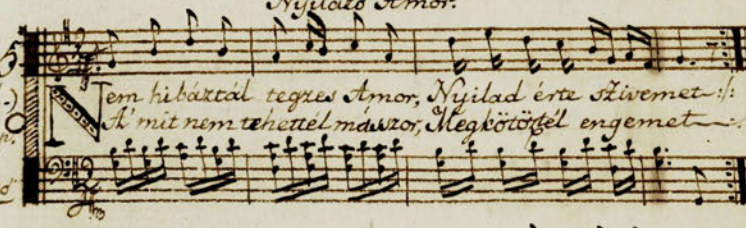 Nyilazó Amor.
Nem hibáztál tegzes Amor, Nyilad érte szivemet :/:
A' mit nem tehettél másszor, Megkötözél engemet